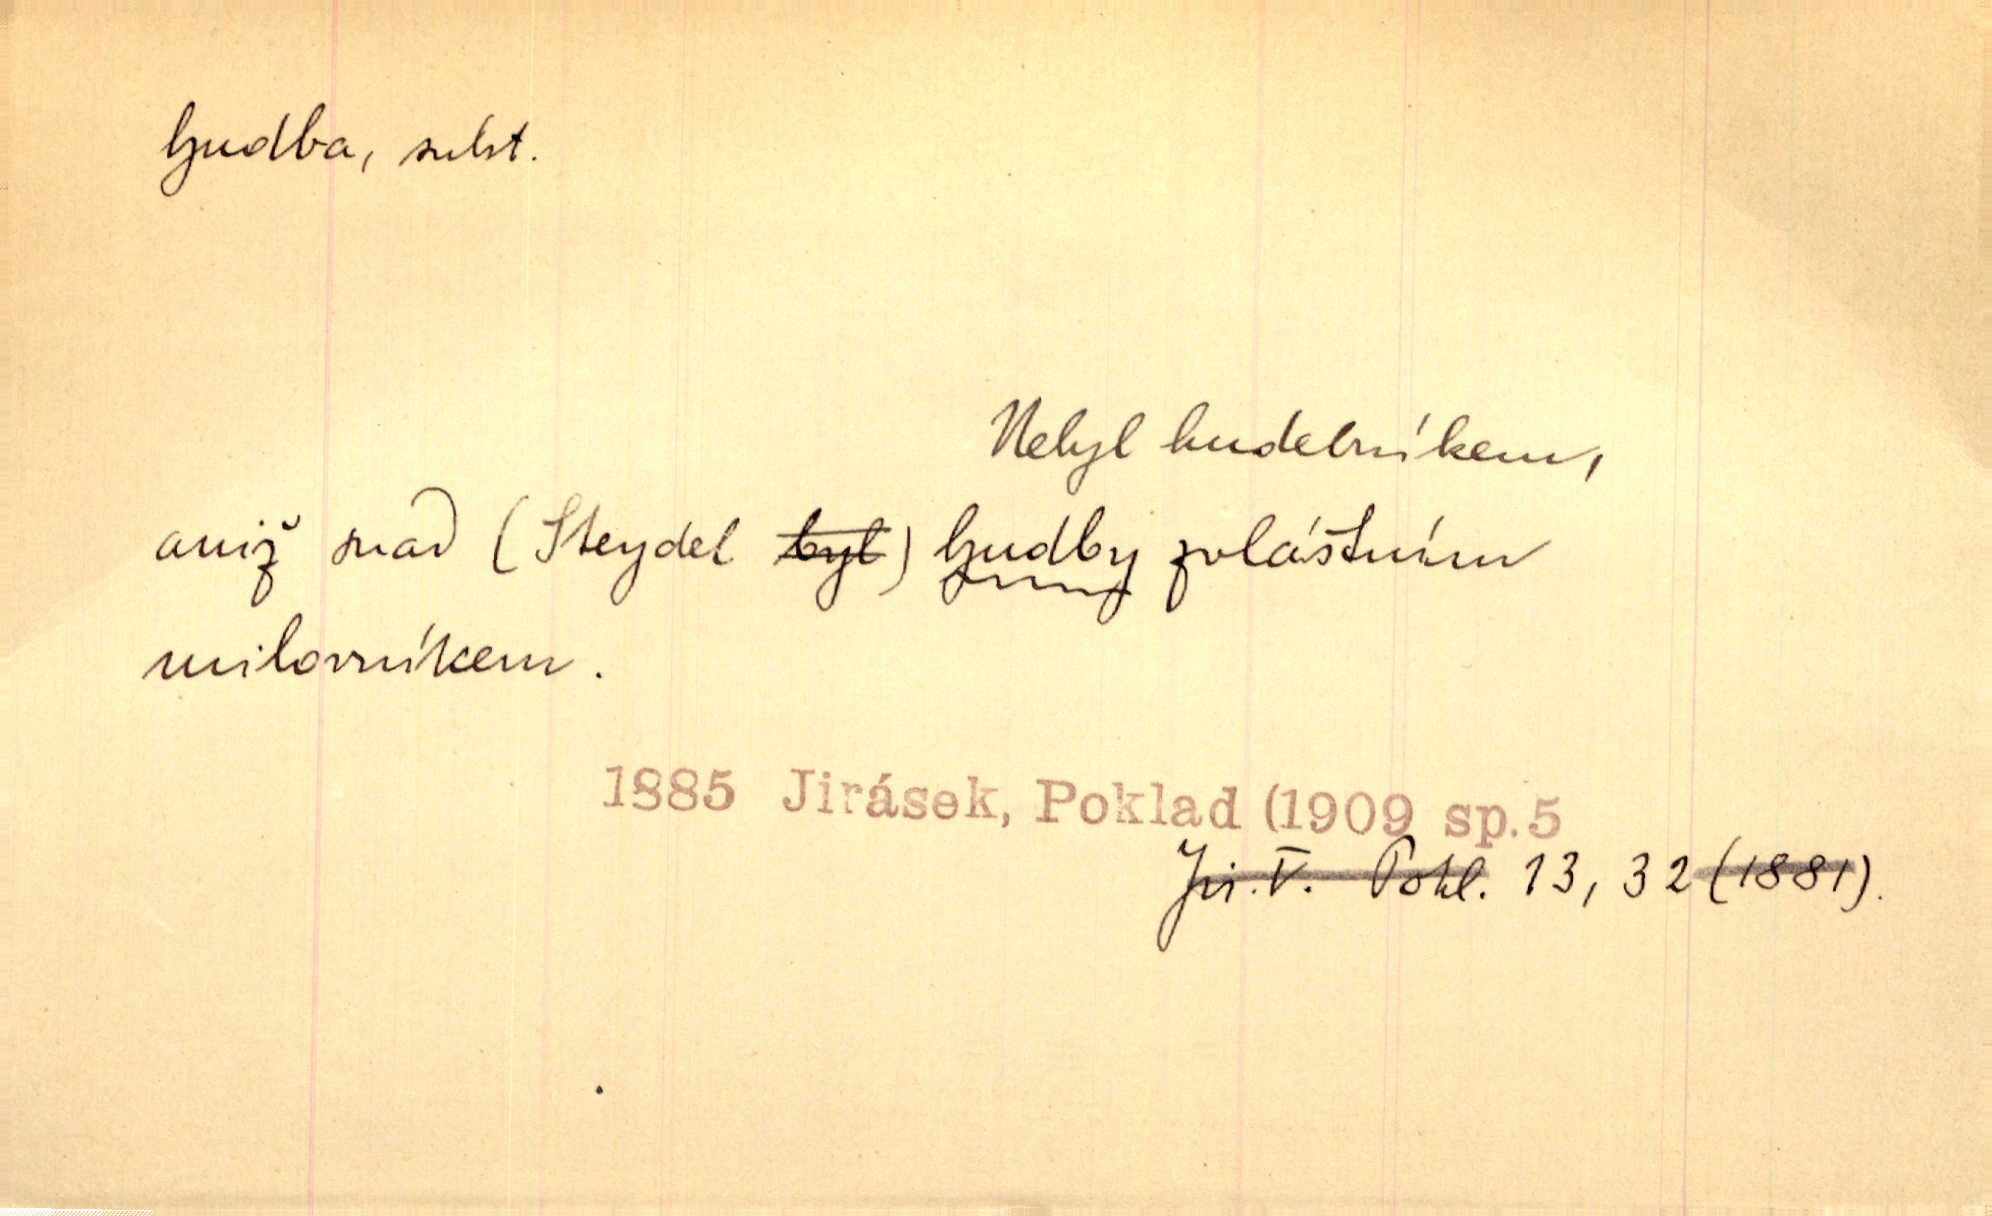 hudba, subst.
Nebyl hudebníkem,
aniž snad (Steydel byl) hudby zvláštním
milovníkem.
1885 Jirásek, Poklad (1909 sp.5
Jir. V. Pokl. 13, 32 (1881).